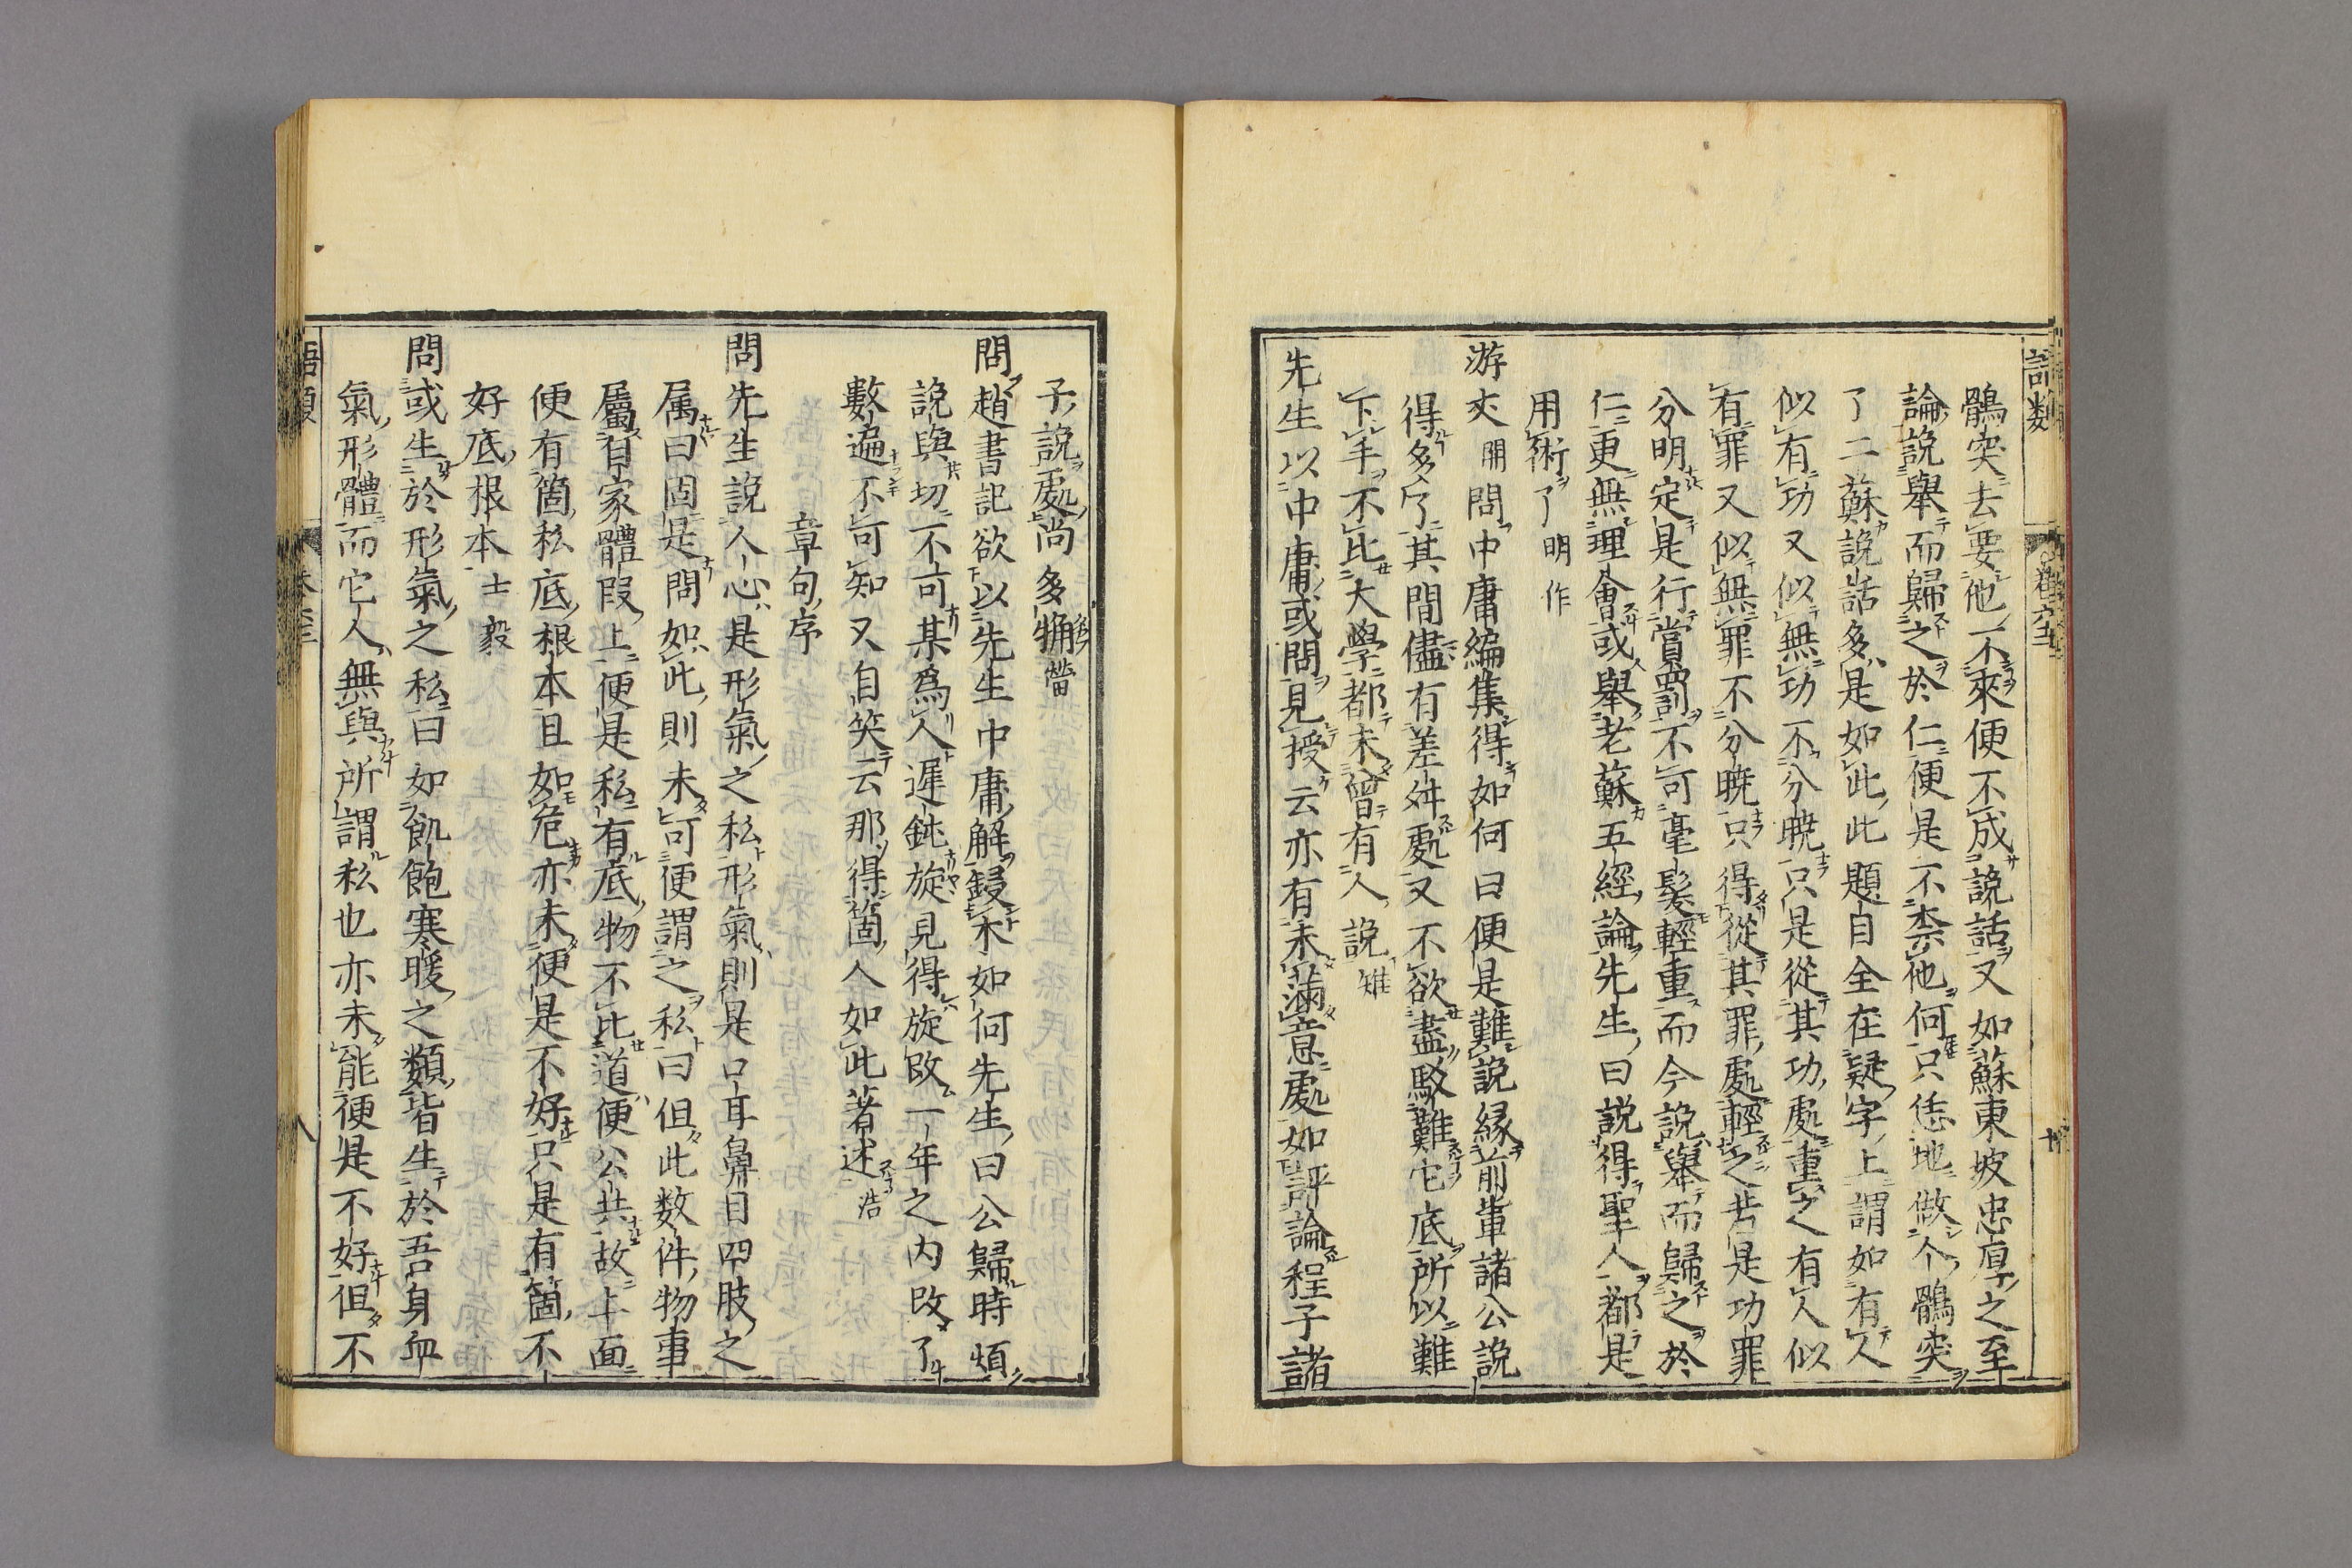 鶻突去要他不來便不成說話又如蘇東坡忠厚之至
論說舉而歸之於仁便是不柰他何只恁地做个鶻突
了二蘇說話多是如此此題自全在疑字上謂如有人
似有功又似無功不分曉只是從其功處重之有人似
有罪又似無罪不分曉只得從其罪處輕之若是功罪
分明定是行賞罰不可毫髮輕重而今說舉而歸之於
仁更無理會或舉老蘇五經論先生曰說得聖人都是
用術了明作
游丈開問中庸編集得如何曰便是難說緣前輩諸公說
得多了其間儘有差舛處又不欲盡駁難它底所以難
下手不比大學都未曾有人說雉
先生以中庸或問見授云亦有未滿意處如評論程子諸
子說處尚多觕𥳑
問趙書記欲以先生中庸解鋟木如何先生曰公歸時煩
說與切不可某爲人遲鈍旋見得旋改一年之內改了
數遍不可知又自笑云那得箇人如此著述浩
章句序
問先生說人心是形氣之私形氣則是口耳鼻目四肢之
属曰固是問如此則未可便謂之私曰但此数件物事
屬自家體段上便是私有底物不比道便公共故上面
便有箇私底根本且如危亦未便是不好只是有箇不
好底根本士毅
問或生於形氣之私曰如飢飽寒暖之類皆生於吾身血
氣形體而它人無與所謂私也亦未能便是不好但不
語類
八